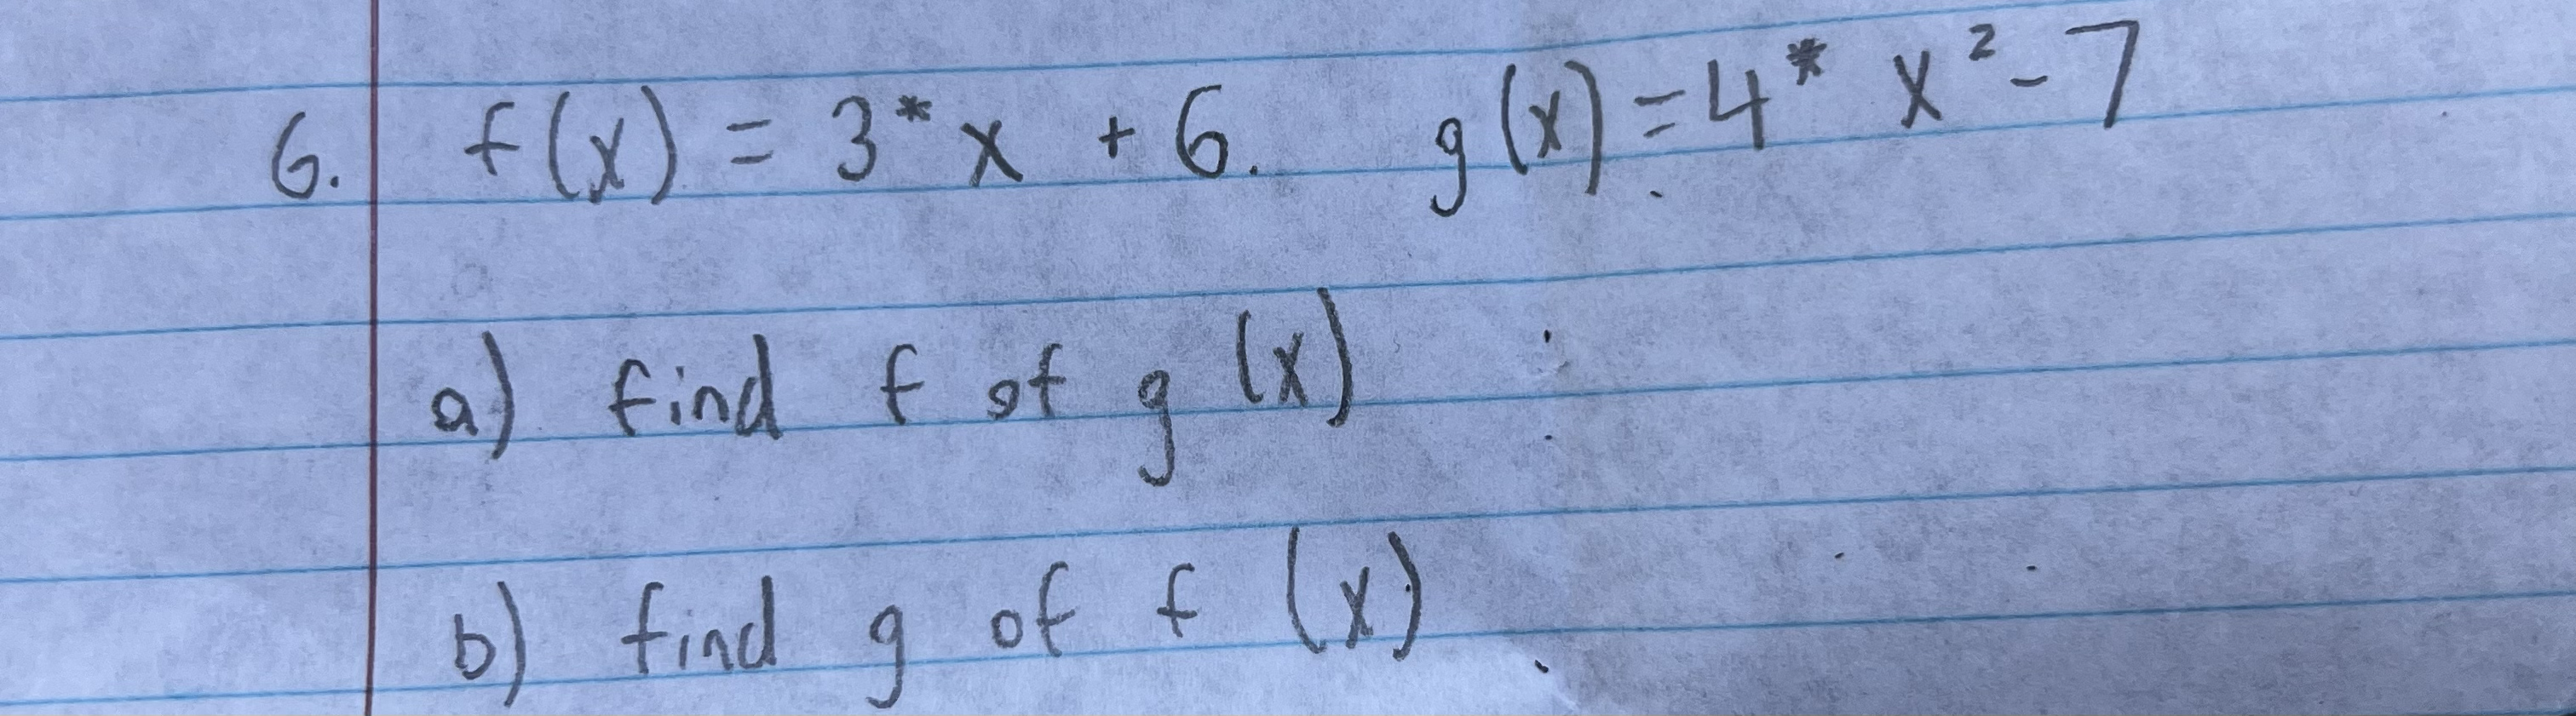 6. f(x) = 3* x + 6. g(x) = 4* x² - 7
a) find f of g (x)
b) find g of f (x)